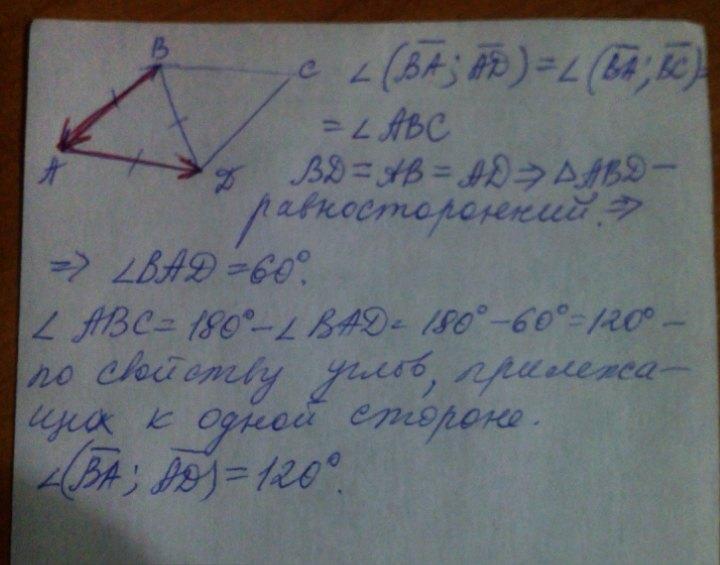 B
C
A
D
∠(B̅A̅; A̅D̅) = ∠(B̅A̅; B̅C̅) =
= ∠ABC
BD = AB = AD ⇒ △ABD —
равносторонний. ⇒
⇒ ∠BAD = 60°.
∠ABC = 180° - ∠BAD = 180° - 60° = 120° —
по свойству углов, прилежа-
щих к одной стороне.
∠(B̅A̅; A̅D̅) = 120°.